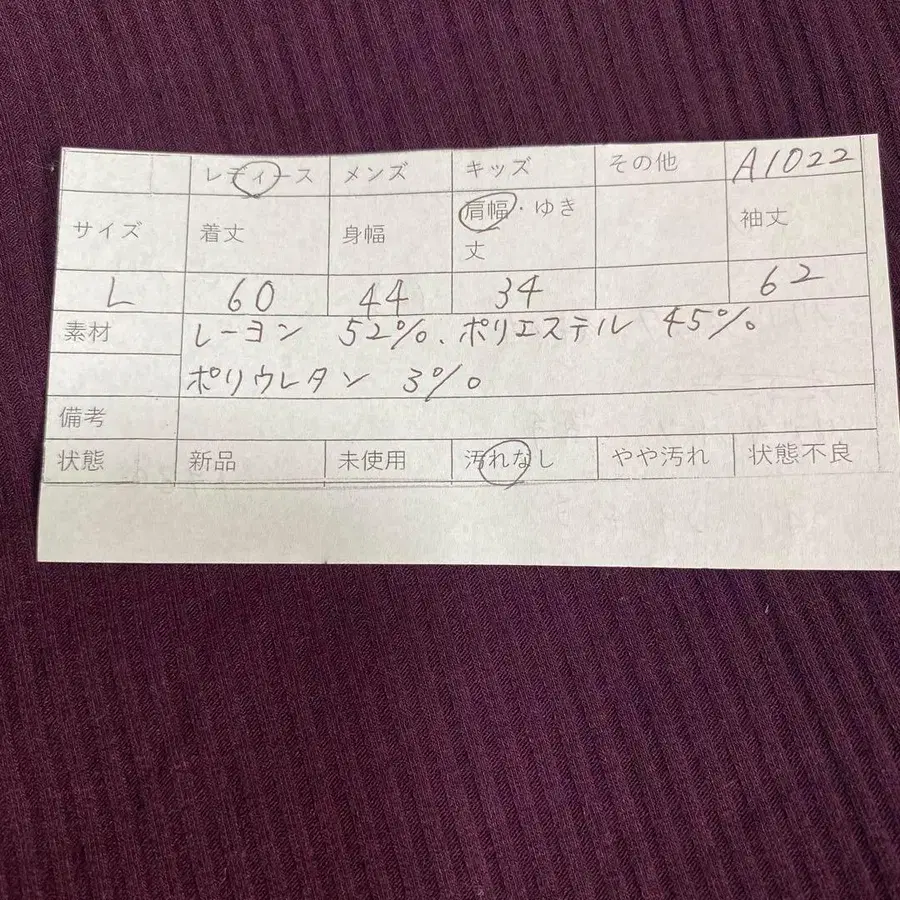 レディース メンズ キッズ その他 A1022
サイズ 着丈 身幅 肩幅・ゆき丈 袖丈
L 60 44 34 62
素材 レーヨン 52%、ポリエステル 45%
ポリウレタン 3%
備考
状態 新品 未使用 汚れなし やや汚れ 状態不良